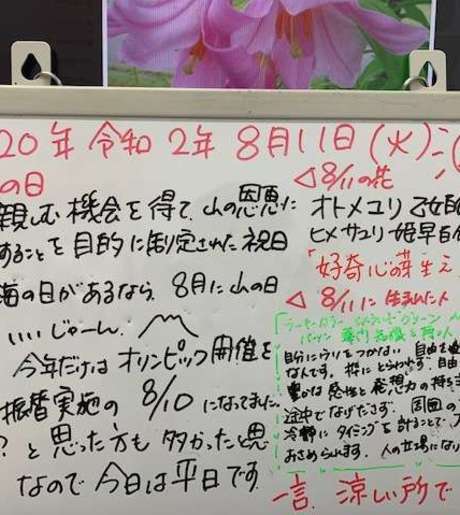 20年 令和2年 8月11日(火)
の日
親しむ機会を得て、山の恩恵に
することを目的に制定された祝日
海の日があるなら、8月に山の日
いいじゃーん。
今年だけは オリンピック開催を
振替実施の 8/10 になってました。
? と思った方も多かったと思
なので 今日は平日です。
◁8/11の花
オトメユリ 乙女
ヒメサユリ 姫早百合
「好奇心の芽生え
◁8/11に生まれた人
自分にウソをつかない 自由を
なんです。 枠にとらわれず、自由
豊かな感性と発想力の持ち主
途中でなげださず、周囲の
冷静にタイミングを計ることで
おさめられます。 人の立場になり
一言. 涼しい所で